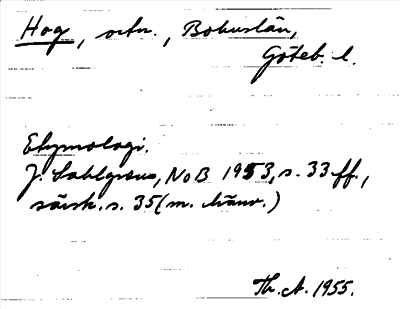 Hog, ortn., Bohuslän,
Göteb. l.
Etymologi.
J. Sahlgren, NoB 1953, s. 33 ff.,
särsk. s. 35 (m. hänv.)
Th. A. 1955.